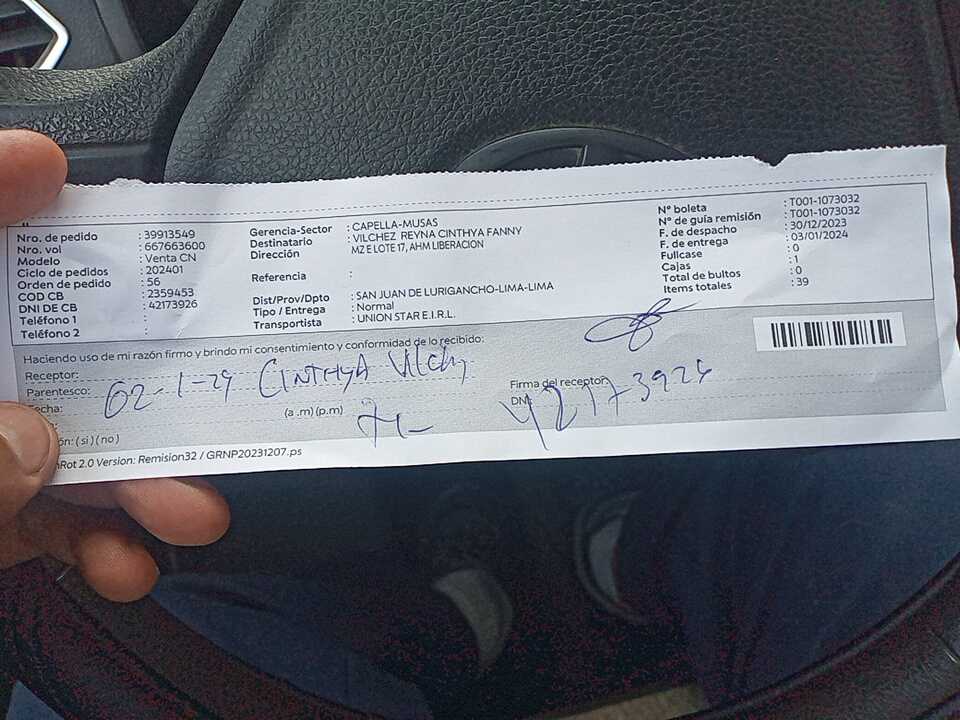 Nro. de pedido : 39913549
Nro. vol : 667663600
Modelo : Venta CN
Ciclo de pedidos : 202401
Orden de pedido : 56
COD CB : 2359453
DNI DE CB : 42173926
Teléfono 1 :
Teléfono 2 :
Gerencia-Sector : CAPELLA-MUSAS
Destinatario : VILCHEZ REYNA CINTHYA FANNY
Dirección MZ E LOTE 17, AHM LIBERACION
Referencia :
Dist/Prov/Dpto : SAN JUAN DE LURIGANCHO-LIMA-LIMA
Tipo / Entrega : Normal
Transportista : UNION STAR E.I.R.L.
N° boleta : T001-1073032
N° de guía remisión : T001-1073032
F. de despacho : 30/12/2023
F. de entrega : 03/01/2024
Fullcase : 0
Cajas : 1
Total de bultos : 0
Items totales : 39
Haciendo uso de mi razón firmo y brindo mi consentimiento y conformidad de lo recibido:
Receptor: CINTHYA
Parentesco: 02-1-24
Fecha: (a .m) (p.m)
Firma del receptor
DNI 42173926
ón: ( si ) ( no )
Rot 2.0 Version: Remision32 / GRNP20231207.ps